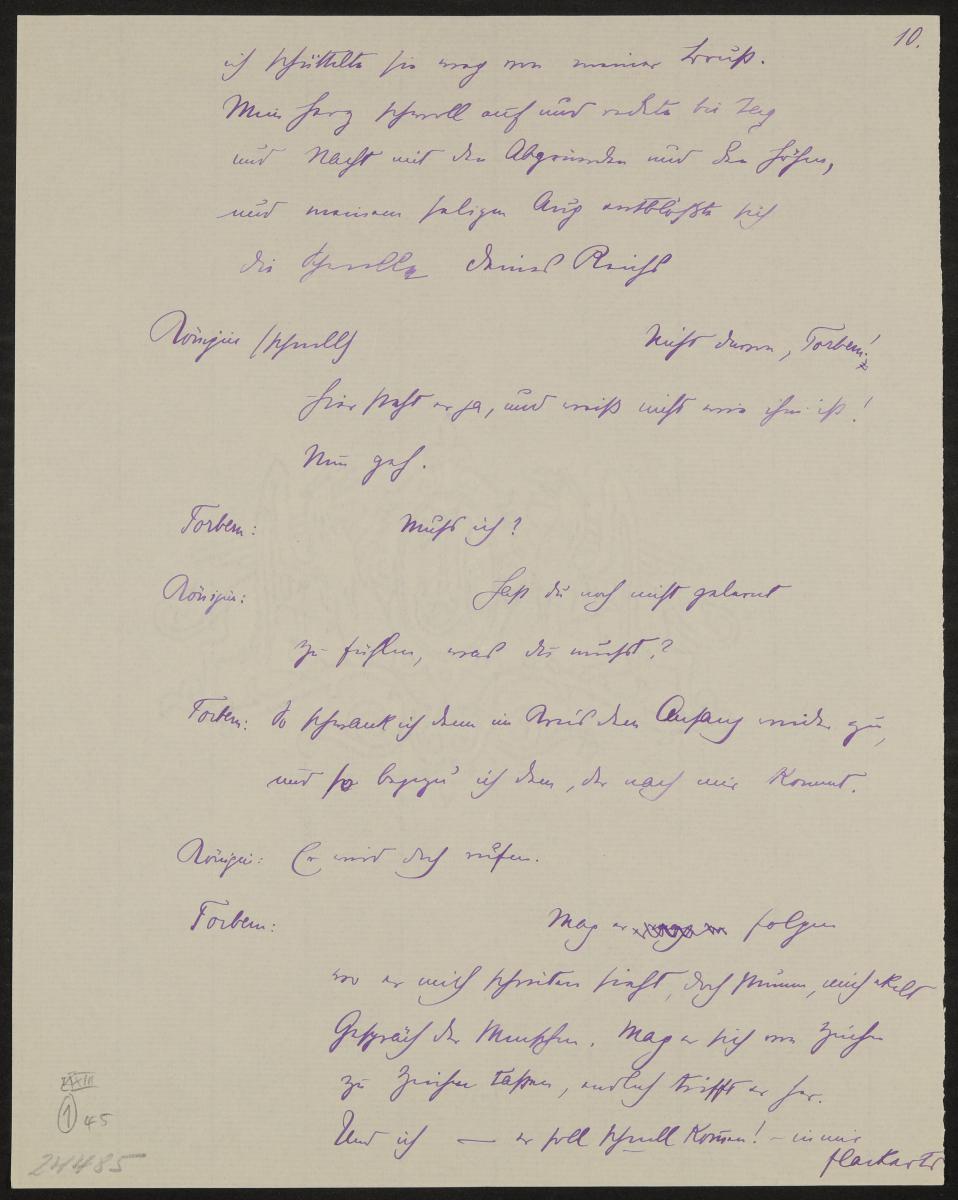 10.
ich schüttelte sie weg von meiner Brust.
Mein Herz schwoll auf und redete bei Tag
und Nacht mit den Abgründen und den Höhen,
und meinem seligen Aug entblößte sich
die Schwelle deines Reichs
Königin (schnell) Nicht davon, Torbern!
Hier steht er ja, und weiß nicht wie ihm ist!
Nun geh.
Torbern: Muss ich?
Königin: Hast du noch nicht gelernt
zu fühlen, was du musst?
Torbern: So schwank ich denn im Kreis dem Anfang wieder zu,
und so begegn' ich dem, der nach mir kommt.
Königin: Er wird dich rufen.
Torbern: Mag er folgen
wo er mich schreiten sieht, doch stumm, mich ekelt
Gespräch der Menschen. Mag er sich von Zeichen
zu Zeichen tasten, endlich trifft er her.
Und ich — er soll schnell kommen! – in mir
flackert's
XXIII
1 45
24485